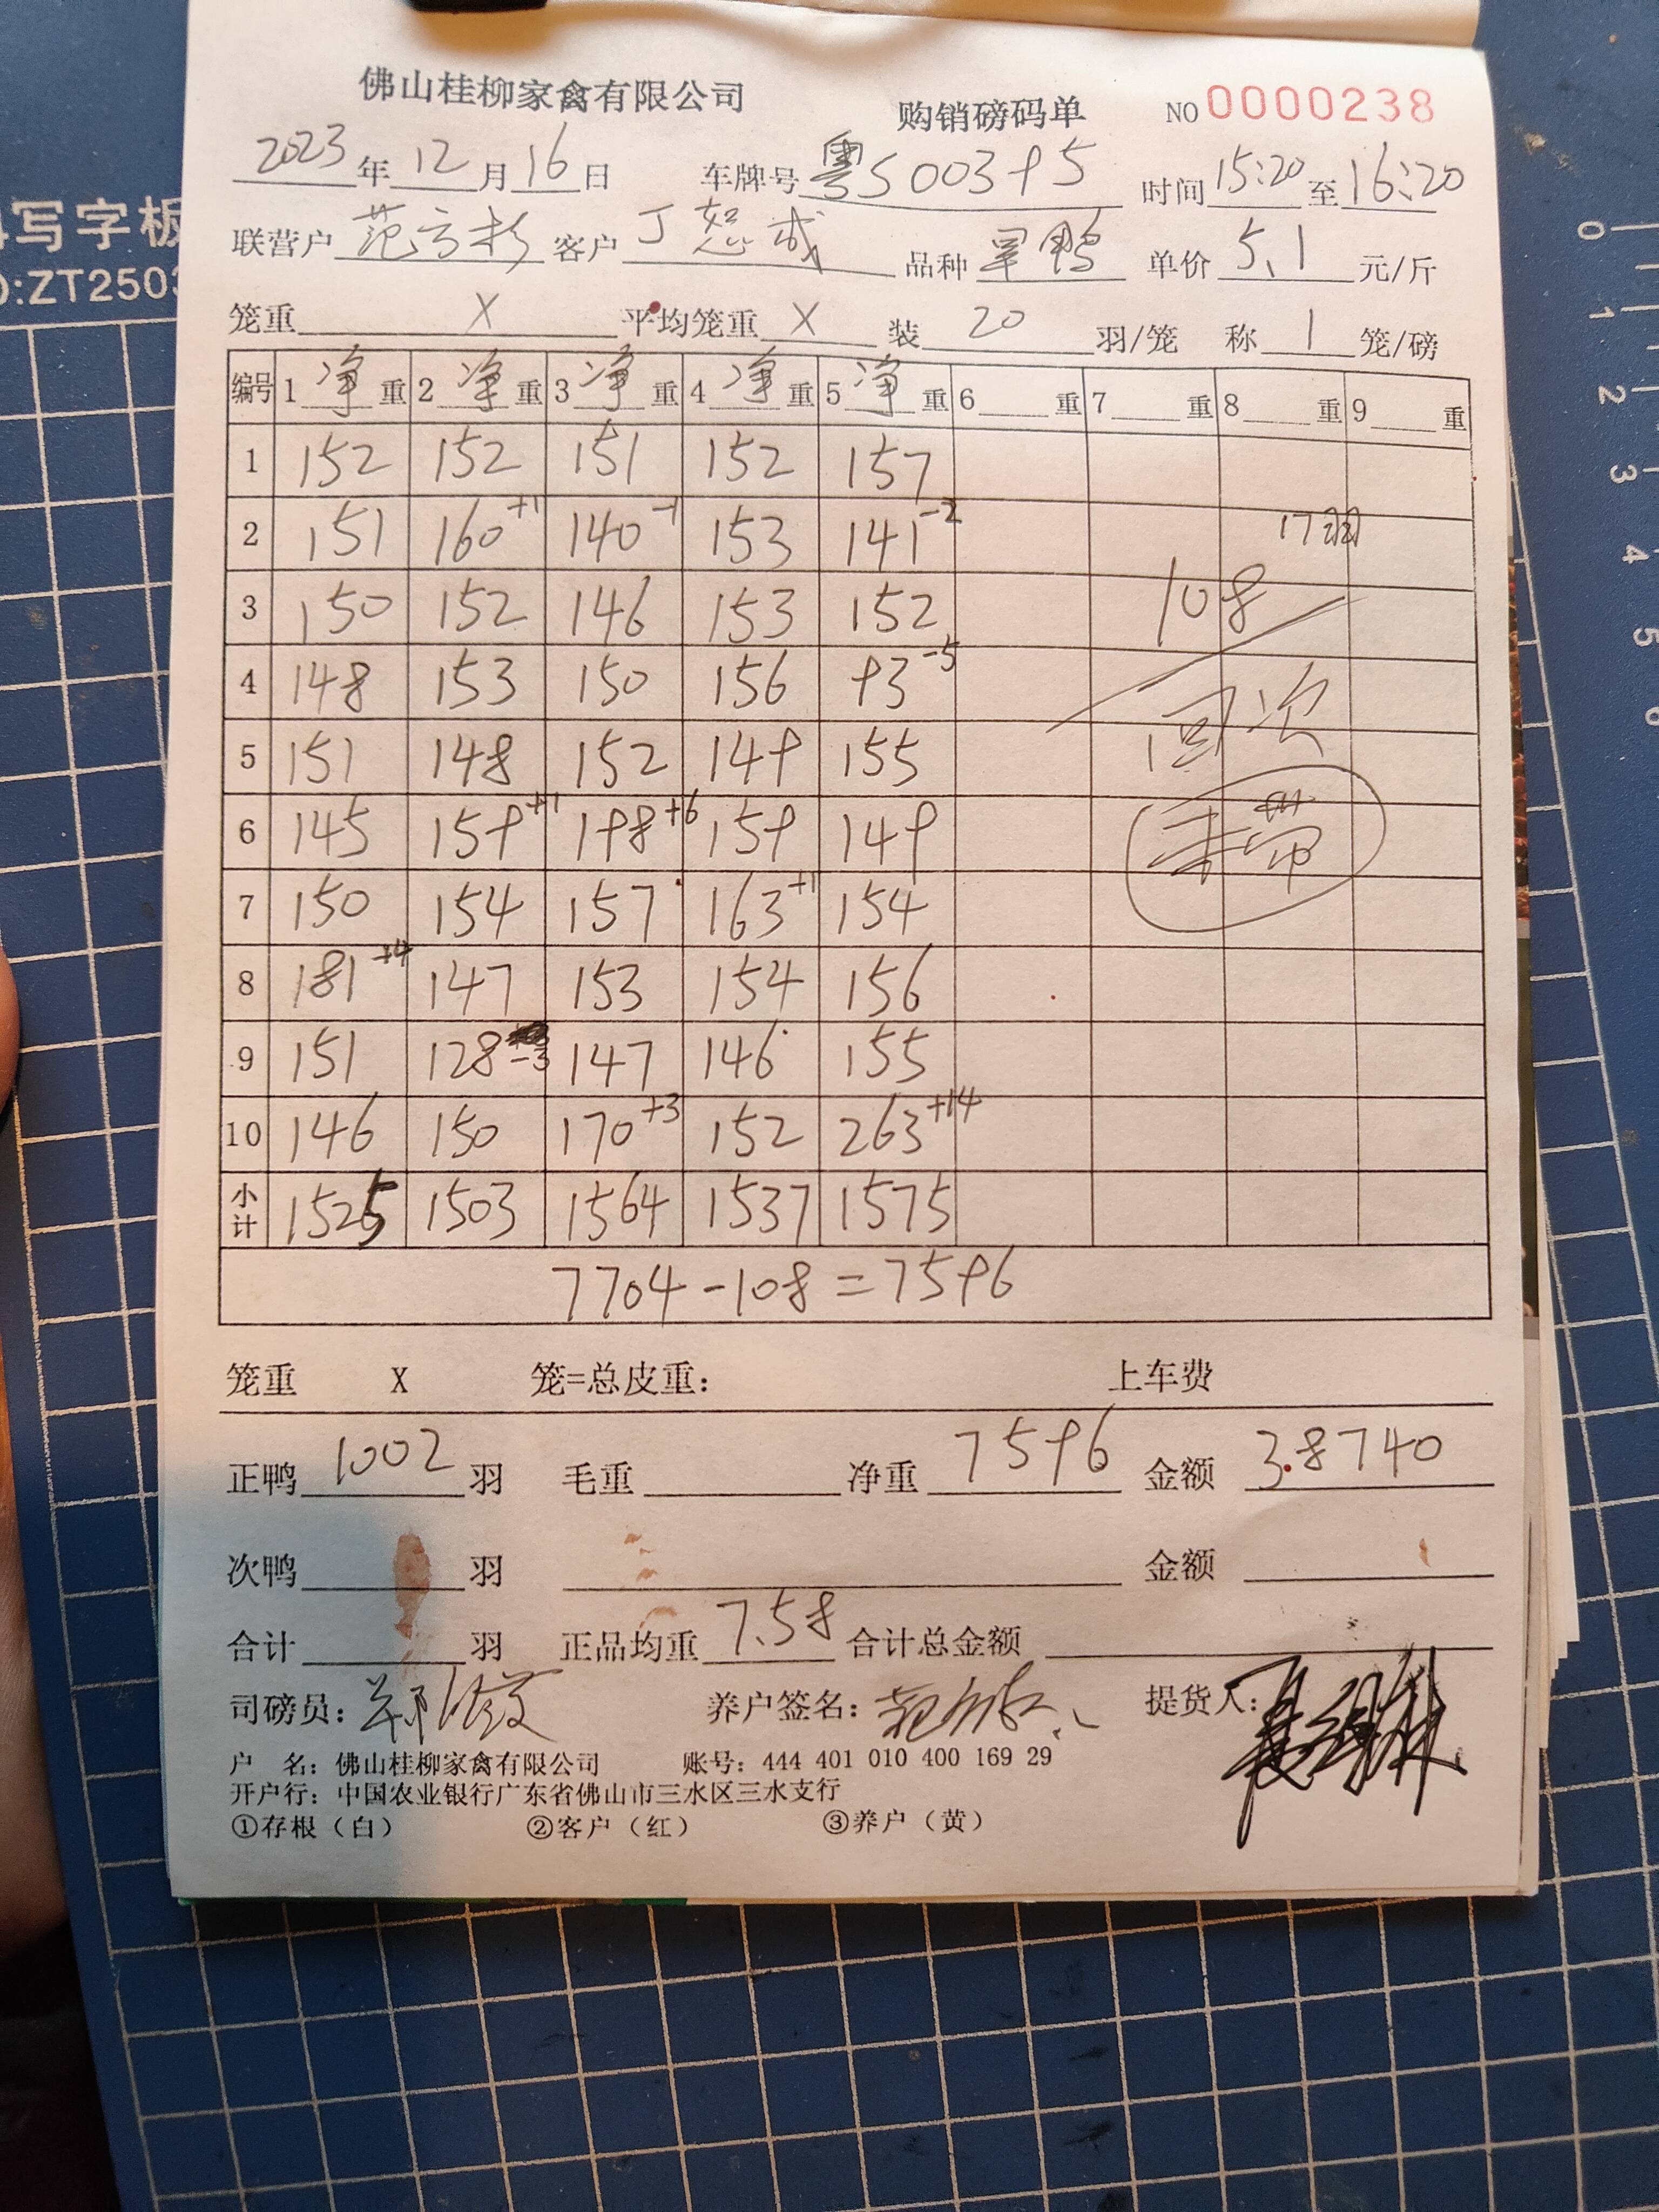 佛山桂柳家禽有限公司 购销磅码单 NO 0000238
2023年12月16日 车牌号 粤S00395 时间 15:20 至 16:20
联营户 范 客户 丁 成 品种 鸭 单价 5.1 元/斤
笼重 X 平均笼重 X 装 20 羽/笼 称 1 笼/磅
编号 1 净 重 2 净 重 3 净 重 4 净 重 5 净 重 6 重 7 重 8 重 9 重
1 152 152 151 152 157
2 151 160+1 140-1 153 141-2 17羽
3 150 152 146 153 152 108
4 148 153 150 156 93-5
5 151 148 152 149 155 回次
6 145 159+1 198+6 159 149 未带
7 150 154 157 163+1 154
8 181+4 147 153 154 156
9 151 128-3 147 146 155
10 146 150 170+3 152 263+14
小计 1525 1503 1564 1537 1575
7704-108=7596
笼重 X 笼=总皮重: 上车费
正鸭 1002 羽 毛重 净重 7596 金额 38740
次鸭 羽 金额
合计 羽 正品均重 7.58 合计总金额
司磅员: 养户签名: 提货人:
户 名: 佛山桂柳家禽有限公司 账号: 444 401 010 400 169 29
开户行: 中国农业银行广东省佛山市三水区三水支行
①存根(白) ②客户(红) ③养户(黄)
写字板
:ZT2503
0
1
2
3
4
5
6